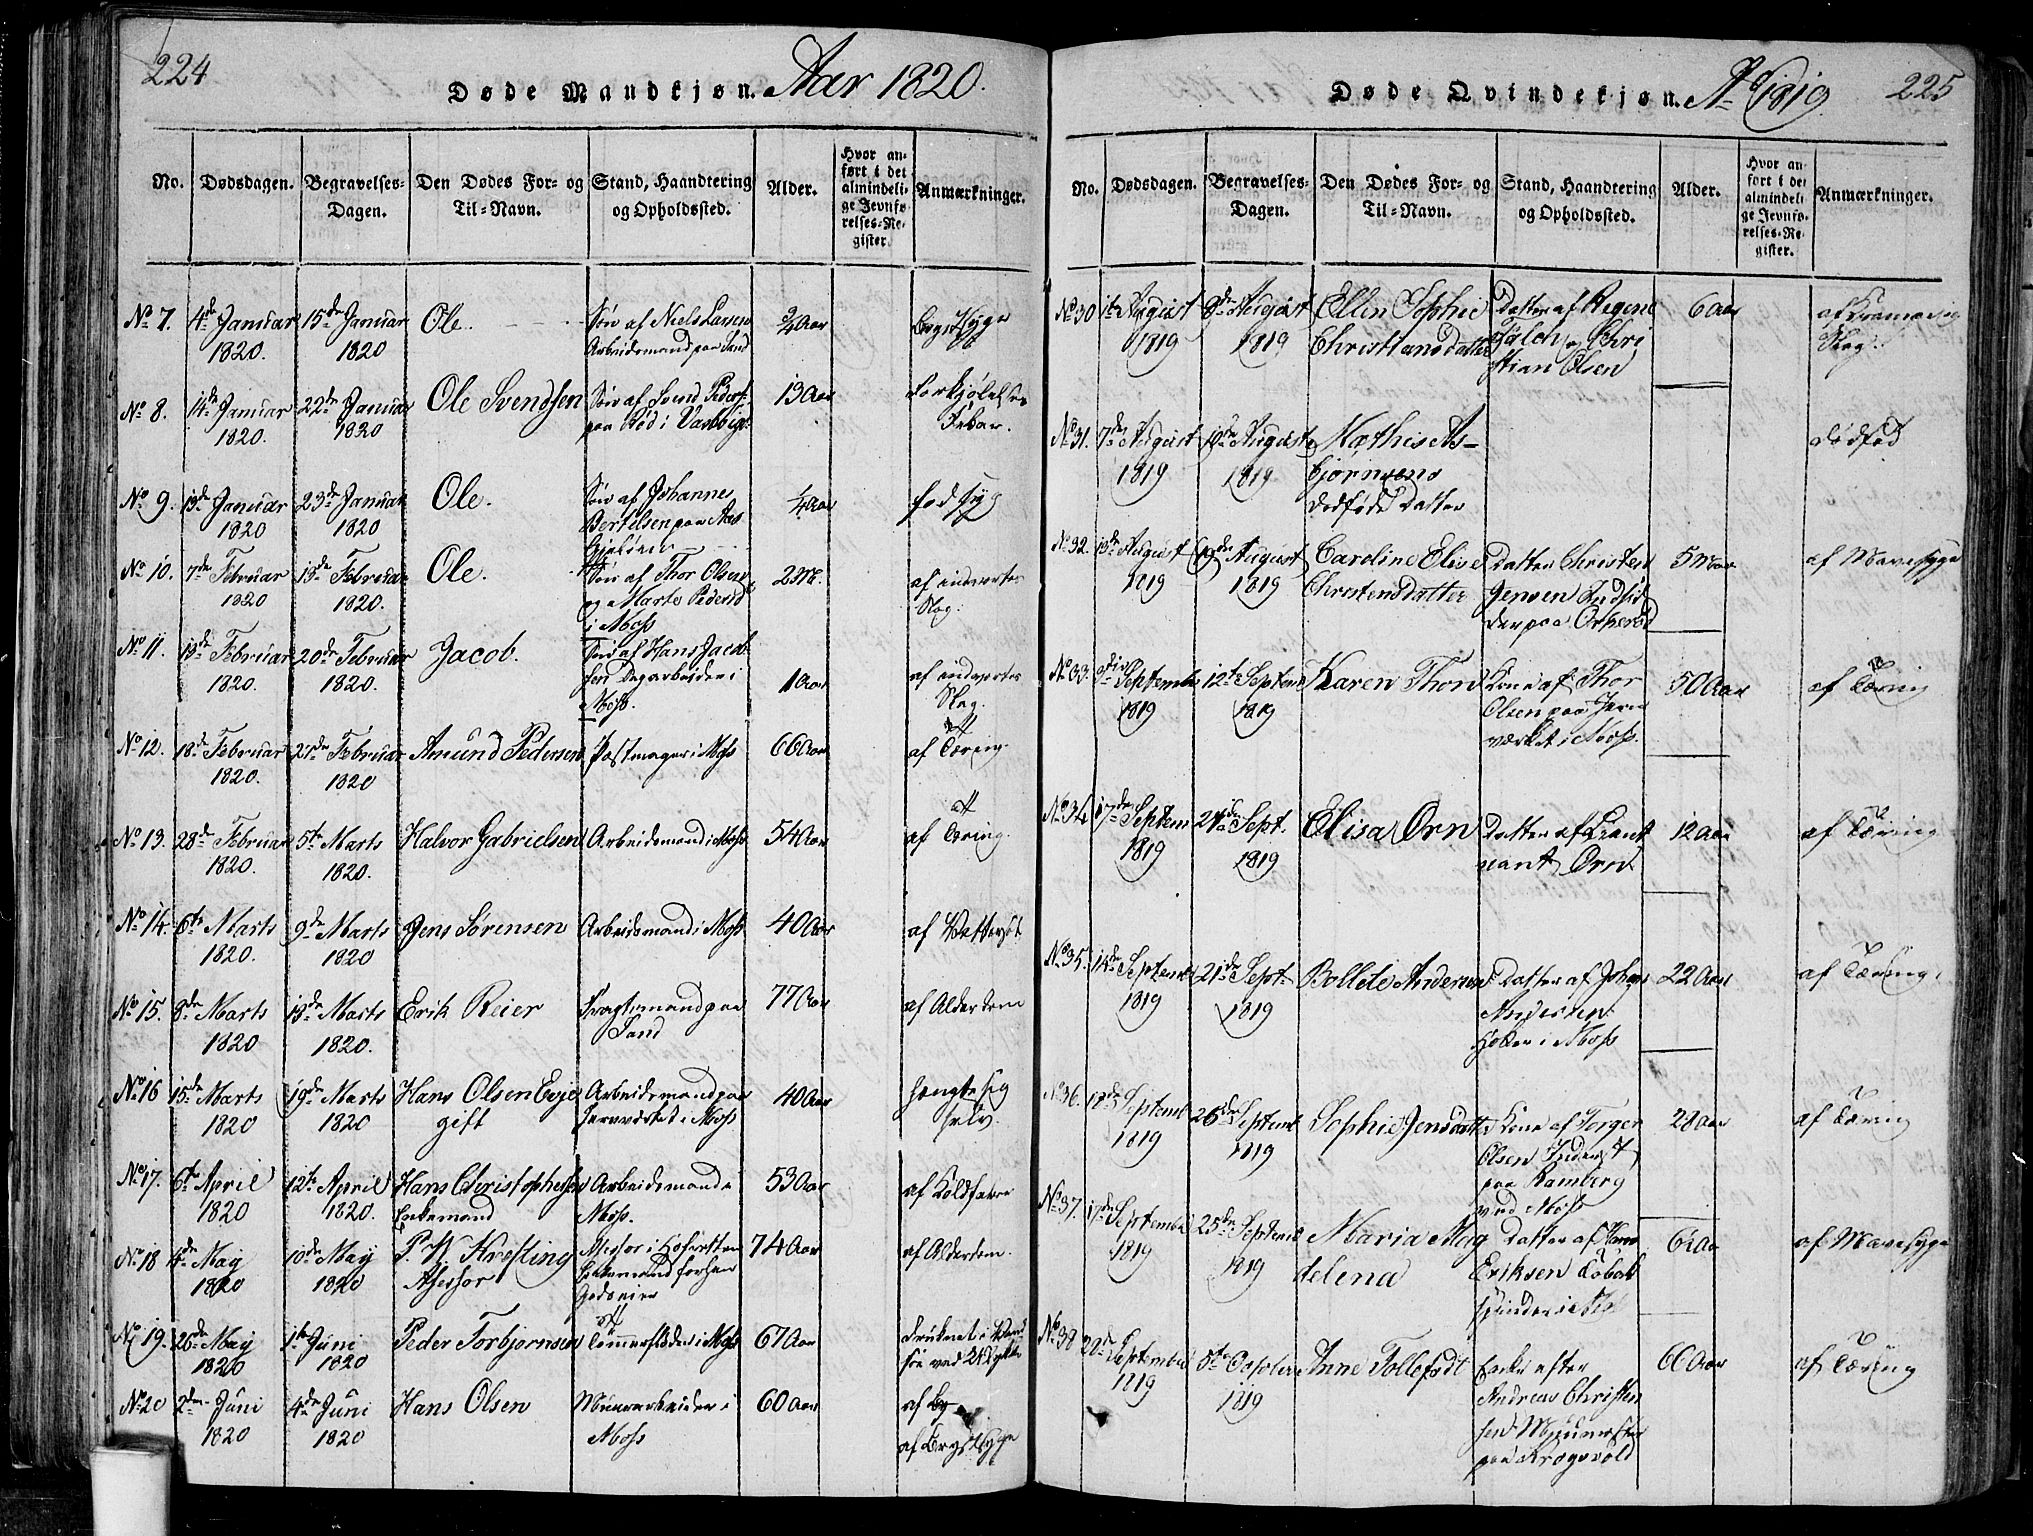 224
Døde Mandkjøn. Aar 1820.
No.
Dødsdagen.
Begravelses-
Dagen.
Den Dødes For- og
Til-Navn.
Stand, Haandtering
og Opholdssted.
Alder.
Hvor an-
ført i det
almindeli-
ge Jevnfø-
relses-Re-
gister.
Anmærkninger.
No 7. 4de Januar 15de Januar Ole. Søn af Niels Larsen ¾ Aar
1820. 1820 Arbeidsmand paa Sand
No 8. 14de Januar 22de Januar Ole Svendsen Søn af Svend Peders- 13 Aar Forkjølelses
1820. 1820 paa Rød i
No 9. 13de Januar 23de Januar Ole. Søn af Johannes ¼ Aar
1820 1820 Bertelsen paa
No 10. 7de Februar 13de Februar Ole. Søn af Thor Olsen 2 M. af indvortes
1820 1820. og Marte Pedersd Slag.
i Moss
No 11. 13de Februar 20de Februar Jacob. Søn af Hans Jacob-
1820. 1820. sen Dagarbeider i 1 Aar af indvortes
Moss. Slag.
No 12. 18de Februar 27de Februar Amund Pedersen i Moss 66 Aar af Tæring.
1820. 1820
No 13. 28de Februar 5te Marts Halvor Gabrielsen Arbeidsmand i Moss 54 Aar af Tæring.
1820. 1820.
No 14. 6te Marts 9de Marts Jens Sørensen Arbeidsmand i Moss 40 Aar af Vattersot
1820. 1820
No 15. 8de Marts 13de Marts Erik Reier paa 77 Aar af Alderdom
1820 1820. Sand
No 16 15de Marts 19de Marts Hans Olsen Evje Arbeidsmand paa 40 Aar hængte sig
1820 1820 gift Jernværket i Moss selv.
No 17. 6te April 12te April Hans Christophersen Arbeidsmand i 53 Aar af Koldfeber
1820 1820. Enkemand Moss.
No 18 4de May 10de May P. W. Krefting Assessor i Hofretten 74 Aar af Alderdom.
1820 1820 Assessor Enkemand forhen
Godseier
No 19. 26de May 1te Juni Peder Torbjornsen Tømmerfløder i Moss 67 Aar druknet i Vand-
1820 1820
No 20 2den Juni 4de Juni Hans Olsen Muurarbeider i 60 Aar af
1820 1820 Moss af Brystsyge
225
Døde Qvindekjøn. Ao 1819.
No.
Dødsdagen.
Begravelses-
Dagen.
Den Dødes For- og
Til-Navn.
Stand, Haandtering
og Opholdssted.
Alder.
Hvor an-
ført i det
almindeli-
ge Jevnfø-
relses-Re-
gister.
Anmærkninger.
No 30 1te August 8de August Ellen Sophie Datter af Regine 6 Aar
1819 1819 Christiansdatter og Chri
Slag. stian Olsen
No 31. 7de August August Mathis As- dødfød
1819 1819 bjørnsens
dødfødte Datter
No 32. 13de August 19de August Caroline Elise Datter Christen 5 Maan af Mavesyge
1819 1819 Christensdatter Jensen Indsid
der paa Orkerød
No 33. September 12te Septem Karen Thors Kone af Thor 50 Aar af Tæring
1819 1819 Olsen paa Jern
værket i Moss.
No 34 17de Septem Sept. Elisa Orn Datter af 12 Aar af Tæring
1819 1819 Orn.
No 35. 14de Septem 21de Sept. Bollete Andersens Datter af 22 Aar af Tæring.
1819 1819 Andersen
Høker i Moss
No 36. 18de Septemb 26de Septemb Sophie Jensdatter Kone af Torger 28 Aar af Tæring
1819 1819 Olsen Inderst
paa Ramberg
ved Moss
No 37. 17de September 25de Septemb Maria Mag Datter af Hans 6 Aar af Mavesyge
1819 1819 delena Eriksen Tobak
spinder i Moss
No 38 September Anne Tollefsdt Enke efter 60 Aar af Tæring
1819 1819 Andreas Christen
sen Muurmester
paa Krogsvold